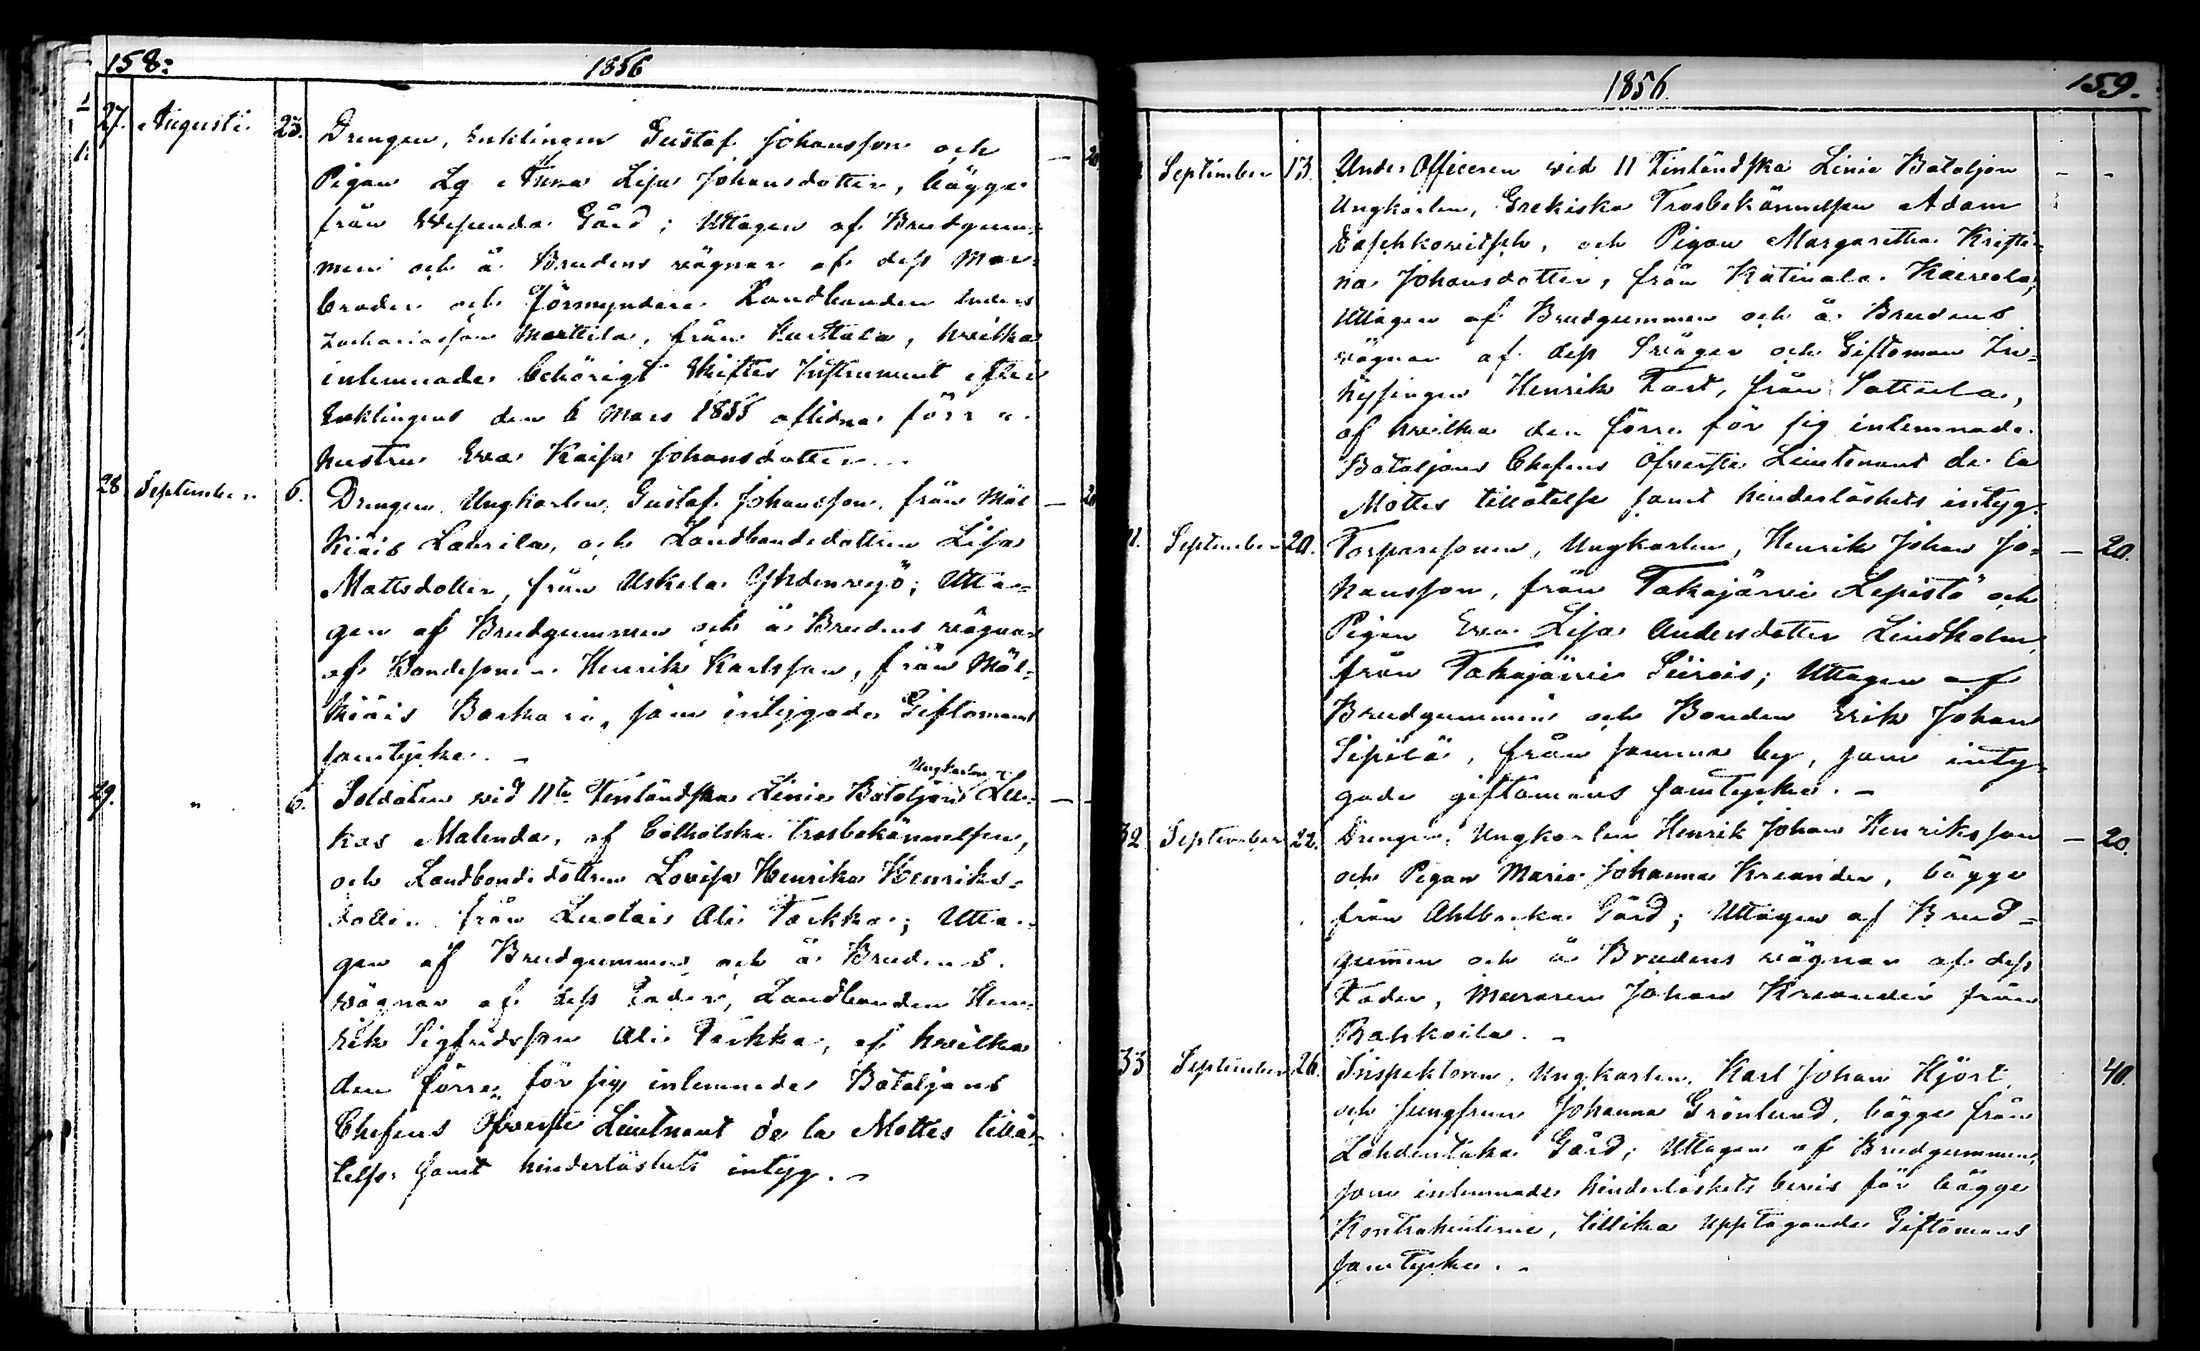 158:
1856
27. Augusti 23. Drengen, Enklingen Gustaf Johansson och — 20
Pigan Lq Anna Lisa Johansdotter, bägge
från Wesunda Gård; Uttagen af Brudgum=
men och å Brudens vägnar af dess Mor=
broder och Förmyndare Landbonden Anders
Zachariasson Marttila, från Kurttala, hvilka
inlemnade behörigt Skiftes Instrument efter
Enklingens den 6 Mars 1855 aflidna förra
hustru Eva Kaisa Johansdotter.
28 September 6. Drengen, Ungkarlen, Gustaf Johansson, från Mäl — 20
kiäis Laurila, och Landbondedottren Lisa
Mattsdotter, från Uskela Yhdensyö; Utta=
gen af Brudgummen och å Brudens vägnar
af Bondesonen Henrik Karlsson, från Mäl=
kiäis Barkari, som intygade Giftomans
samtycke. —
Ungkarlen
29. " 6. Soldaten vid 11te Finländska Linie Bataljon Lu= — —
kas Malenda, af Catholska trosbekännelsen,
och Landbondedottren Lovisa Henrika Henriks=
dotter från Luolais Ali Tarkka; Utta=
gen af Brudgummen och å Brudens
vägnar af dess Fader, Landbonden Hen=
rik Sigfridsson Ali Tarkka, af hvilka
den förre, för sig inlemnade Bataljons
Chefens Öfverste Lieutnant de la Mottes tillå=
telse samt hinderlöshets intyg. —
1856.
159.
September 13. Under Officeren vid 11 Finländska Linie Bataljon — -
Ungkarlen, Grekiska Trosbekännelsen Adam
Daschkovitsch, och Pigan Margaretha Kristi=
na Johansdotter, från Katinala Kairola;
Uttagen af Brudgummen och å Brudens
vägnar af dess Svåger och Giftoman In=
hysingen Henrik Fast, från Sattula,
af hvilka den förre för sig inlemnade
Bataljons Chefens Öfverste Lieutenant de la
Mottes tillåtelse samt hinderlöshets intyg.
September 20. Torparesonen, Ungkarlen, Henrik Johan Jo= — 20.
hansson, från Takajärvi Lepistö och
Pigan Eva Lisa Andersdotter Lindholm,
från Takajärvi Siirois; Uttagen af
Brudgummen och Bonden Erik Johan
Sipilä, från samma by, som inty=
gade giftomans samtycke. —
32 September 22. Drengen, Ungkarlen Henrik Johan Henriksson — 20.
och Pigan Maria Johanna Kreander, bägge
från Ahlbacka Gård; Uttagen af Brud=
gummen och å Brudens vägnar af dess
Fader, Muraren Johan Kreander från
Pahkoila. —
33 September 26. Inspektoren, Ungkarlen, Karl Johan Hjört, 40.
och Jungfrun Johanna Grönlund, bägge från
Lahdentaka Gård; Uttagen af Brudgummen,
som inlemnade hinderlöshets bevis för bägge
Kontrahenterne, tillika upptagande Giftomans
samtycke. —